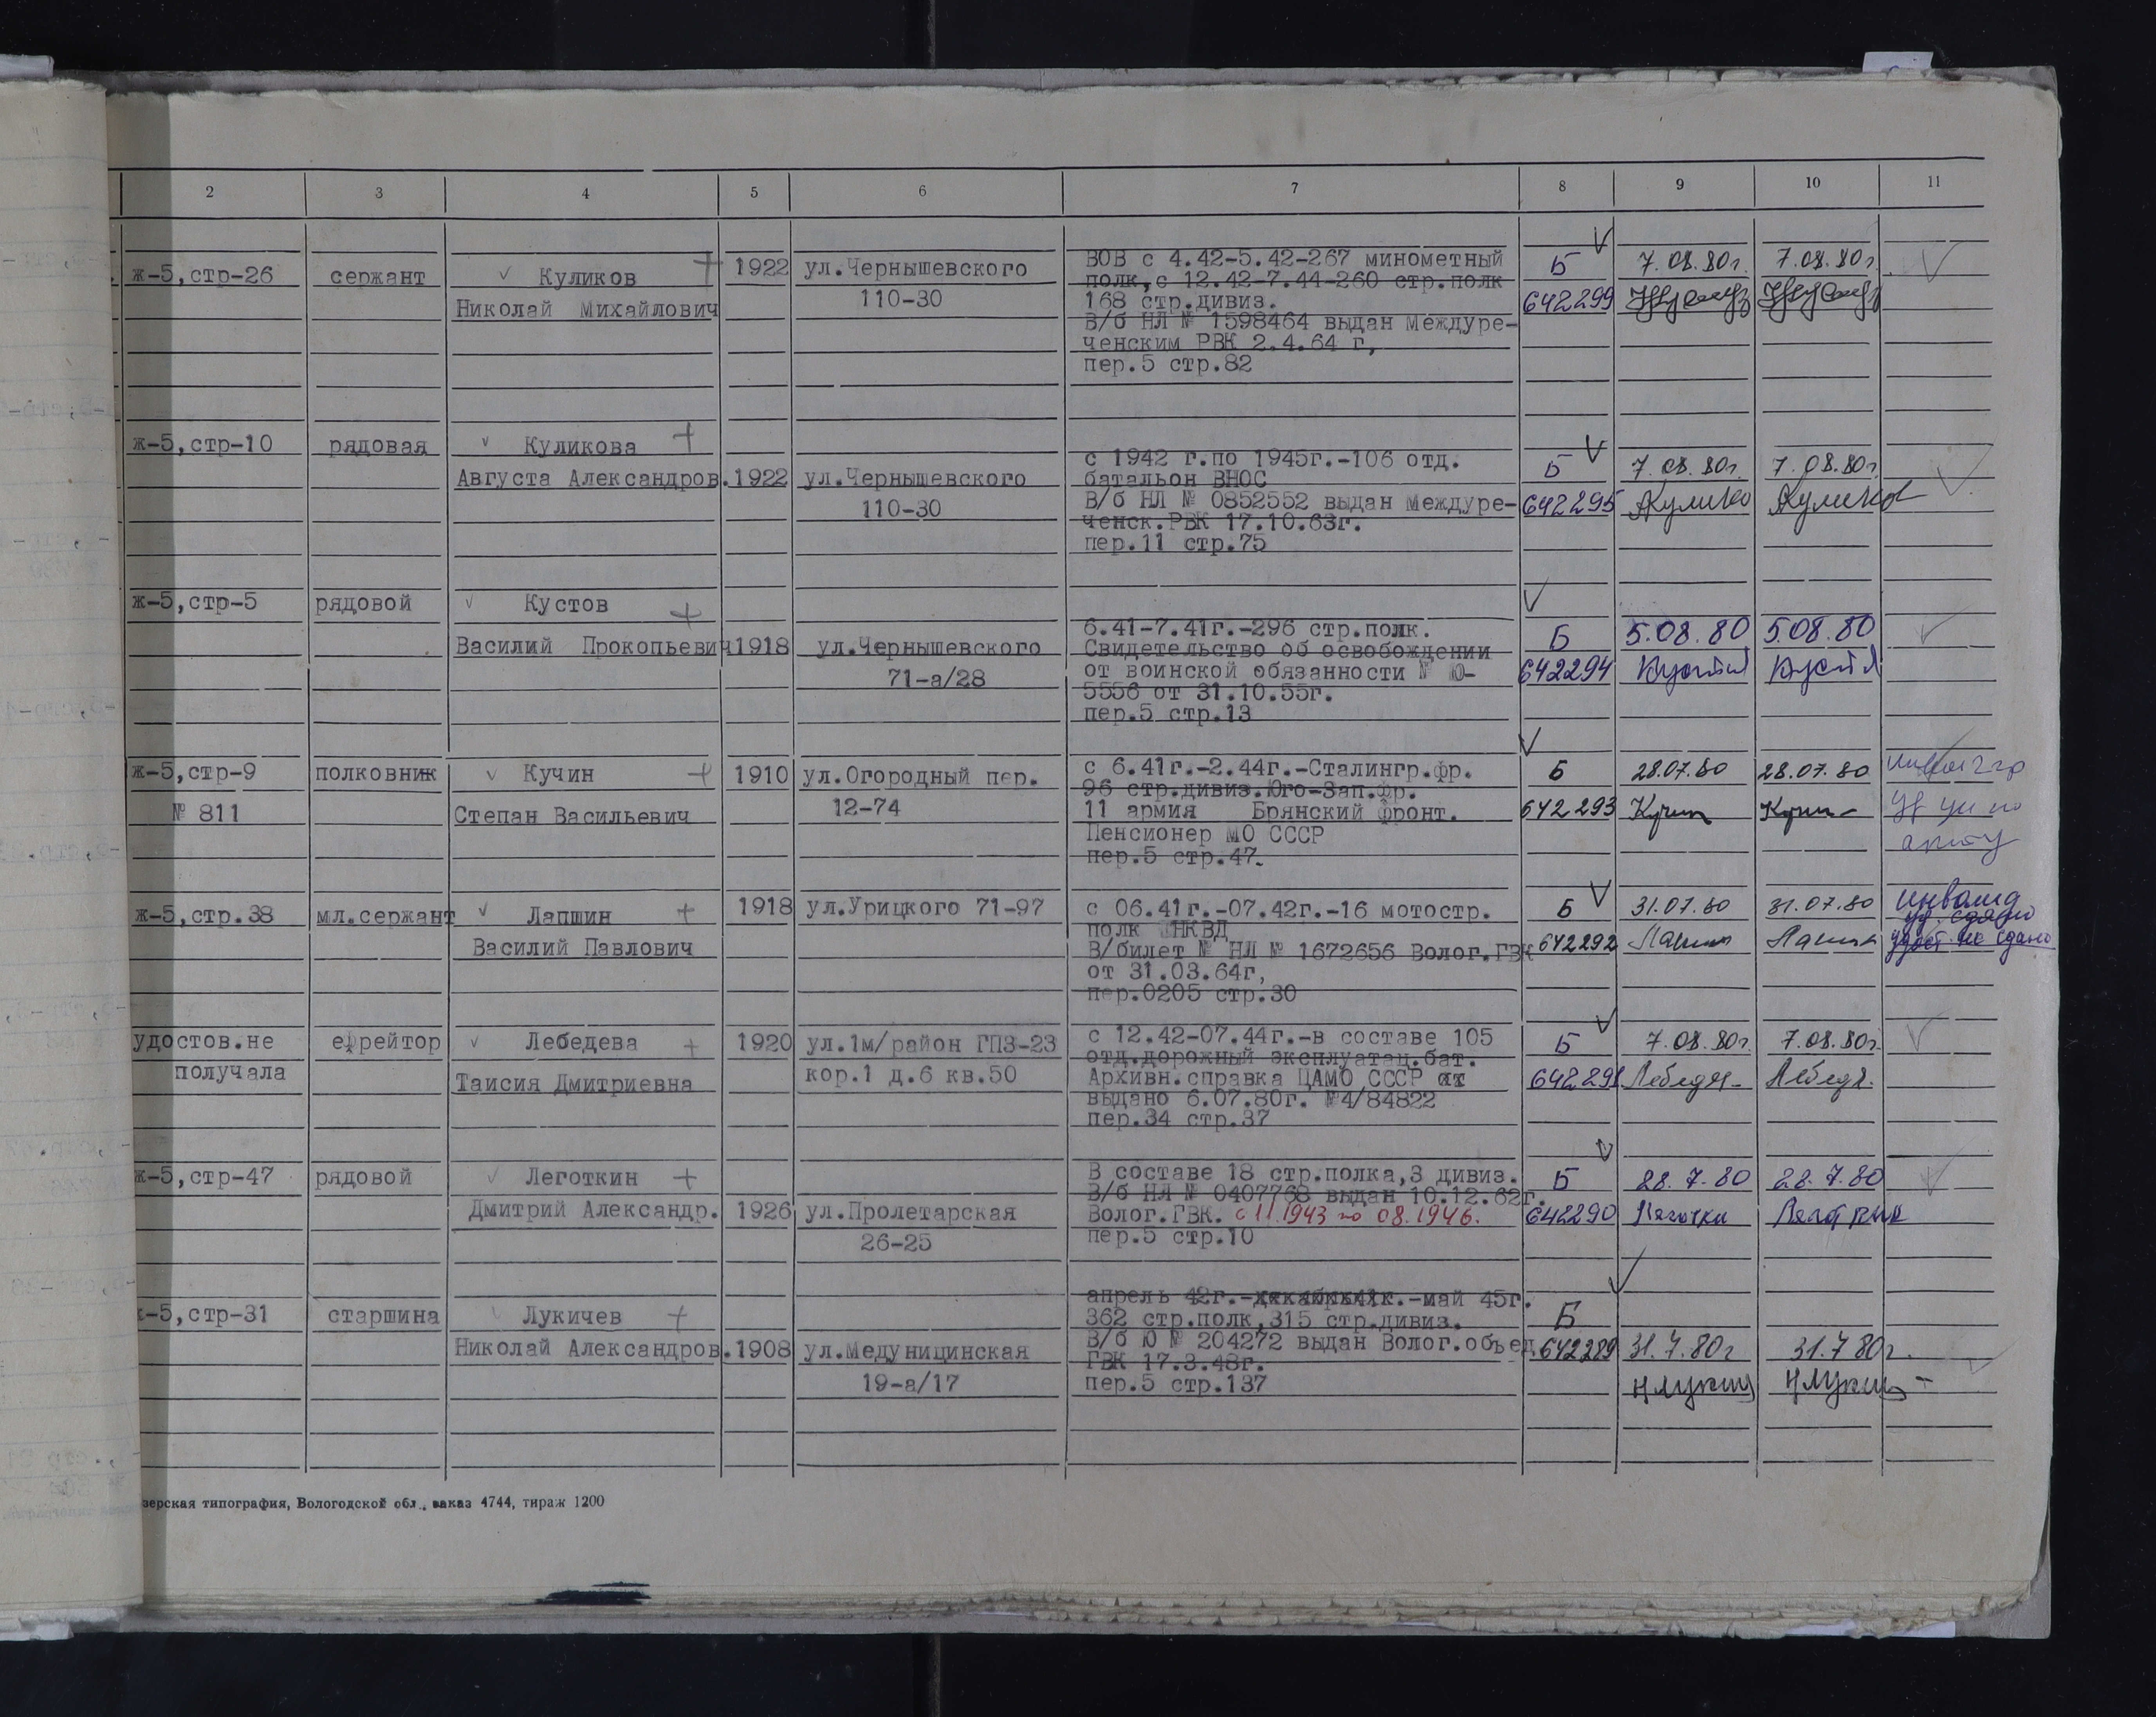 2 3 4 5 6 7 8 9 10 11
ж-5,стр-26 сержант Куликов 1922 ул.Чернышевского
110-30
Николай Михайлович
ВОВ с 4.42-5.42-267 минометный
полк,с 12.42-7.44-260 стр.полк
168 стр.дивиз.
В/б НЛ № 1598464 выдан Междуре-
ченским РВК 2.4.64 г,
пер.5 стр.82
Б 7.08.80г. 7.08.80г.
642299
ж-5,стр-10 рядовая Куликова
Августа Александров. 1922 ул.Чернышевского
110-30
с 1942 г.по 1945г.-106 отд.
батальон ВНОС
В/б НЛ № 0852552 выдан Междуре-
ченск.РВК 17.10.63г.
пер.11 стр.75
Б 7.08.80г. 7.08.80г
642295 Кулико Куликов
ж-5,стр-5 рядовой Кустов
Василий Прокопьевич 1918 ул.Чернышевского
71-а/28
6.41-7.41г.-296 стр.полк.
Свидетельство об освобождении
от воинской обязанности № Ю-
5556 от 31.10.55г.
пер.5 стр.13
Б 5.08.80 5.08.80
642294
ж-5,стр-9 полковник Кучин 1910 ул.Огородный пер.
№ 811 Степан Васильевич 12-74
с 6.41г.-2.44г.-Сталингр.фр.
96 стр.дивиз.Юго-Зап.фр.
11 армия Брянский фронт.
Пенсионер МО СССР
пер.5 стр.47.
Б 28.07.80 28.07.80
642293 Кучин
ж-5,стр.38 мл.сержант Лапшин 1918 ул.Урицкого 71-97
Василий Павлович
с 06.41г.-07.42г.-16 мотостр.
полк НКВД
В/билет № НЛ № 1672656 Волог.ГВК
от 31.03.64г,
пер.0205 стр.30
Б 31.07.80 31.07.80 инвалид
642292 уд. сдано
удост. не сдано
удостов.не ефрейтор Лебедева 1920 ул.1м/район ГПЗ-23
получала Таисия Дмитриевна кор.1 д.6 кв.50
с 12.42-07.44г.-в составе 105
отд.дорожный эксплуатац.бат.
Архивн.справка ЦАМО СССР
выдано 6.07.80г. №4/84822
пер.34 стр.37
Б 7.08.80г. 7.08.80г.
642291
ж-5,стр-47 рядовой Леготкин
Дмитрий Александр. 1926 ул.Пролетарская
26-25
В составе 18 стр.полка,3 дивиз.
В/б НЛ № 0407768 выдан 10.12.62г.
Волог.ГВК. с 11.1943 по 08.1946.
пер.5 стр.10
Б 28.7.80 28.7.80
642290
ж-5,стр-31 старшина Лукичев
Николай Александров. 1908 ул.Медуницинская
19-а/17
апрель 42г.- -май 45г.
362 стр.полк,315 стр.дивиз.
В/б Ю № 204272 выдан Волог.объед.
ГВК 17.3.48г.
пер.5 стр.137
Б
642289 31.7.80г 31.7.80г.
зерская типография, Вологодской обл., заказ 4744, тираж 1200